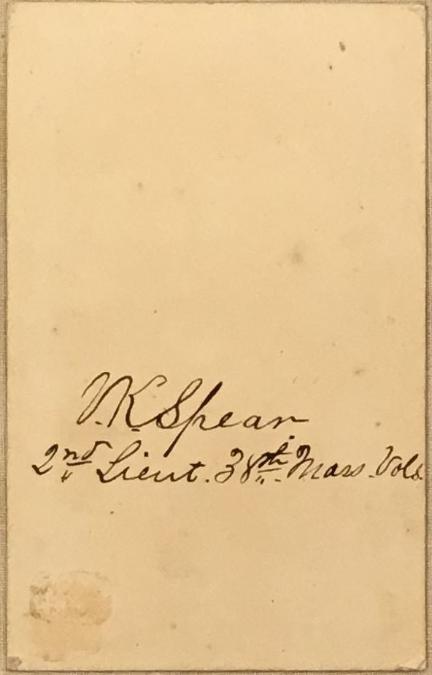 V.K. Spear
2nd Lieut. 38th Mass. Vols.